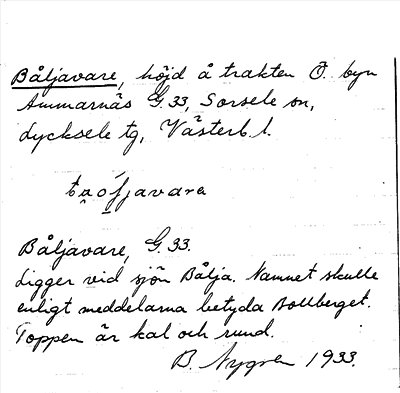 Båljavare, höjd å trakten Ö. byn
Ammarnäs G.33, Sorsele sn,
Lycksele tg, Västerb. l.
Båljavare, G.33.
Ligger vid sjön Bålja. Namnet skulle
enligt meddelarna betyda Bollberget.
Toppen är kal och rund.
B. Nygren 1933.